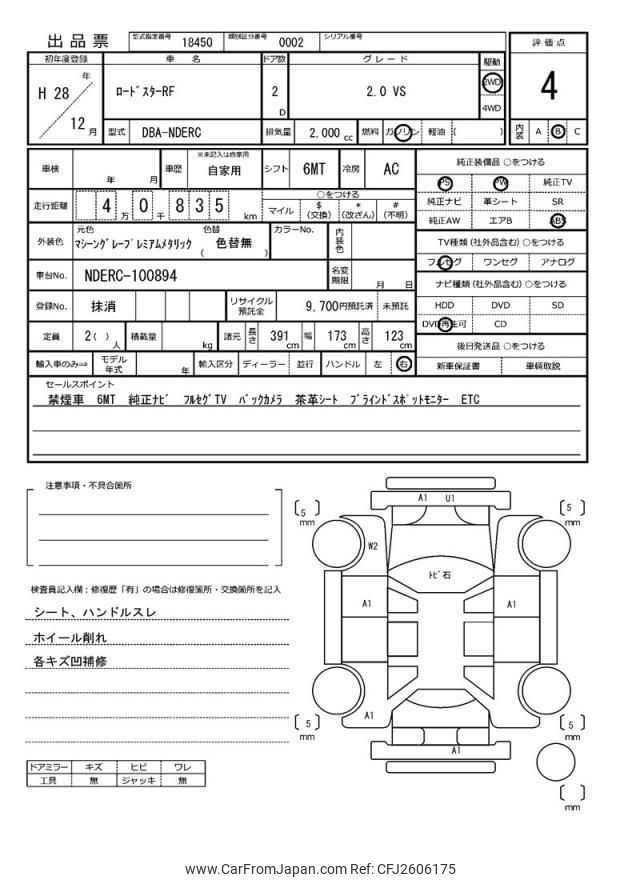 出品票 型式指定番号 18450 類別区分番号 0002 シリアル番号
評価点
4
内装 A B C
初年度登録 車名 ドア数 グレード 駆動
H 28 年 12 月 ロードスターRF 2 D 2.0 VS 2WD 4WD
型式 DBA-NDERC 排気量 2,000 cc 燃料 ガソリン 軽油 ( )
車検 年 月 車歴 ※未記入は自家用 自家用 シフト 6MT 冷房 AC
走行距離 4 万 0 千 8 3 5 km ○をつける マイル $(交換) *(改ざん) #(不明)
外装色 元色 マシーングレープレミアムメタリック 色替 ( 色替無 ) カラーNo. 内装色
車台No. NDERC-100894 名変期限 月 日
登録No. 抹消 リサイクル預託金 9,700円預託済 未預託
定員 2( ) 人 積載量 kg 諸元 長さ 391 cm 幅 173 cm 高さ 123 cm
輸入車のみ⇒ モデル年式 年 輸入区分 ディーラー 並行 ハンドル 左 右
純正装備品 ○をつける
PS PW 純正TV
純正ナビ 革シート SR
純正AW エアB ABS
TV種類 (社外品含む) ○をつける
フルセグ ワンセグ アナログ
ナビ種類 (社外品含む) ○をつける
HDD DVD SD
DVD再生可 CD
後日発送品 ○をつける
新車保証書 車輌取説
セールスポイント
禁煙車 6MT 純正ナビ フルセグTV バックカメラ 茶革シート ブラインドスポットモニター ETC
注意事項・不具合箇所
検査員記入欄:修復歴「有」の場合は修復箇所・交換箇所を記入
シート、ハンドルスレ
ホイール削れ
各キズ凹補修
ドアミラー キズ ヒビ ワレ
工具 無 ジャッキ 無
A1 U1
[5] mm
[5] mm
W2
トビ石
A1
A1
A1
[5] mm
[5] mm
A1
[ ] mm
www.CarFromJapan.com Ref: CFJ2606175